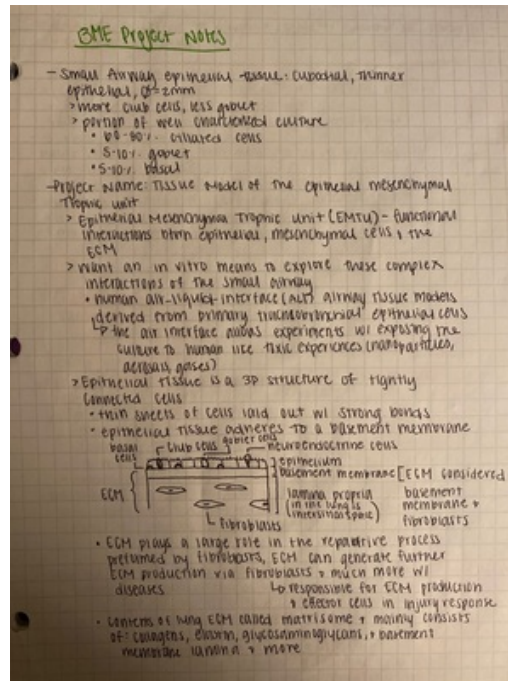 BME Project Notes
- Small Airway epithelial tissue: cubodial, thinner
epithelial, Ø=2mm
> more club cells, less goblet
> portion of well charctorized culture
• 60-80% ciliated cells
• 5-10% goblet
• 5-10% basal
- Project Name: Tissue Model of the epithelial mesenchymal
Trophic unit
> Epithelial Mesenchymal Trophic Unit (EMTU) - functional
interactions btwn epithelial, mesenchymal cells, & the
ECM
> want an in vitro means to explore these complex
interactions of the small airway
• human air-liquid-interface (ALI) airway tissue models
derived from primary tracheobronchial epithelial cells
↳ the air interface allows experiments w/ exposing the
culture to human like toxic experiences (nanoparticles,
aerosols, gases)
> Epithelial tissue is a 3D structure of tightly
connected cells
• thin sheets of cells laid out w/ strong bonds
• epithelial tissue adheres to a basement membrane
basal cells
club cells
goblet cells
neuroendocrine cells
epithelium
basement membrane [ECM considered
basement
membrane +
fibroblasts
ECM
lamina propria
(in the lung is
interstitial space)
fibroblasts
• ECM plays a large role in the reparitive process
preformed by fibroblasts, ECM can generate further
ECM production via fibroblasts & much more w/
diseases
↳ responsible for ECM production
& effector cells in injury response
• contents of lung ECM called matrisome & mainly consists
of: collagens, elastin, glycosaminoglycans, & basement
membrane lamina & more